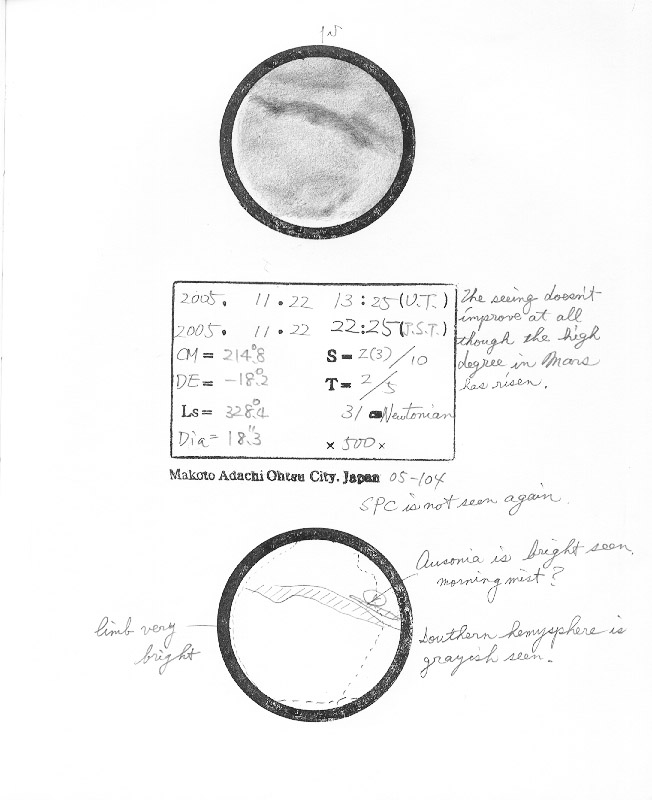 2005. 11.22 13:25 (U.T.)
2005. 11.22 22:25 (J.S.T.)
CM = 214.°8 S = 2(3)/10
DE = -18.°2 T = 2/5
Ls = 328.°4 31 cm Newtonian
Dia = 18."3 × 500×
The seeing doesn't
improve at all
though the high
degree in Mars
has risen.
Makoto Adachi Ohtsu City. Japan 05-104
SPC is not seen again.
Ausonia is bright seen.
morning mist?
limb very
bright
Southern hemysphere is
grayish seen.